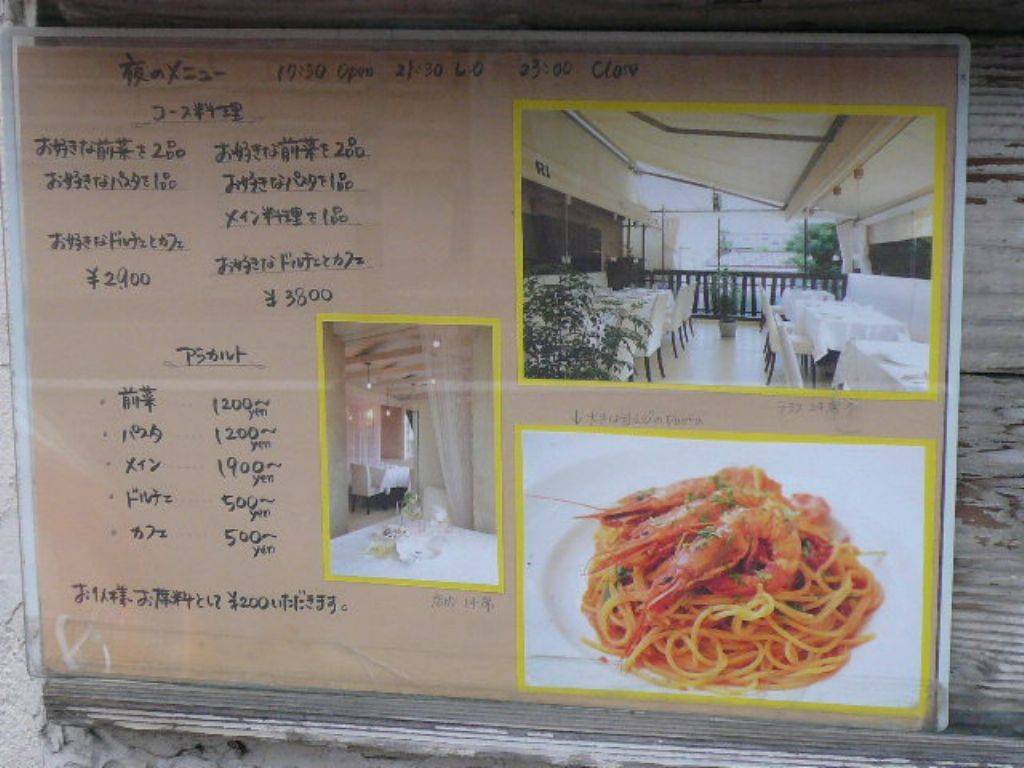 夜のメニュー 17:30 Open 21:30 L.O 23:00 Close
コース料理
お好きな前菜を2品
お好きなパスタを1品
お好きなドルチェとカフェ
¥2900
お好きな前菜を2品
お好きなパスタを1品
メイン料理を1品
お好きなドルチェとカフェ
¥3800
アラカルト
・前菜 1200〜yen
・パスタ 1200〜yen
・メイン 1900〜yen
・ドルチェ 500〜yen
・カフェ 500〜yen
お1人様、お席料として¥200いただきます。
店内 14席
テラス 24席